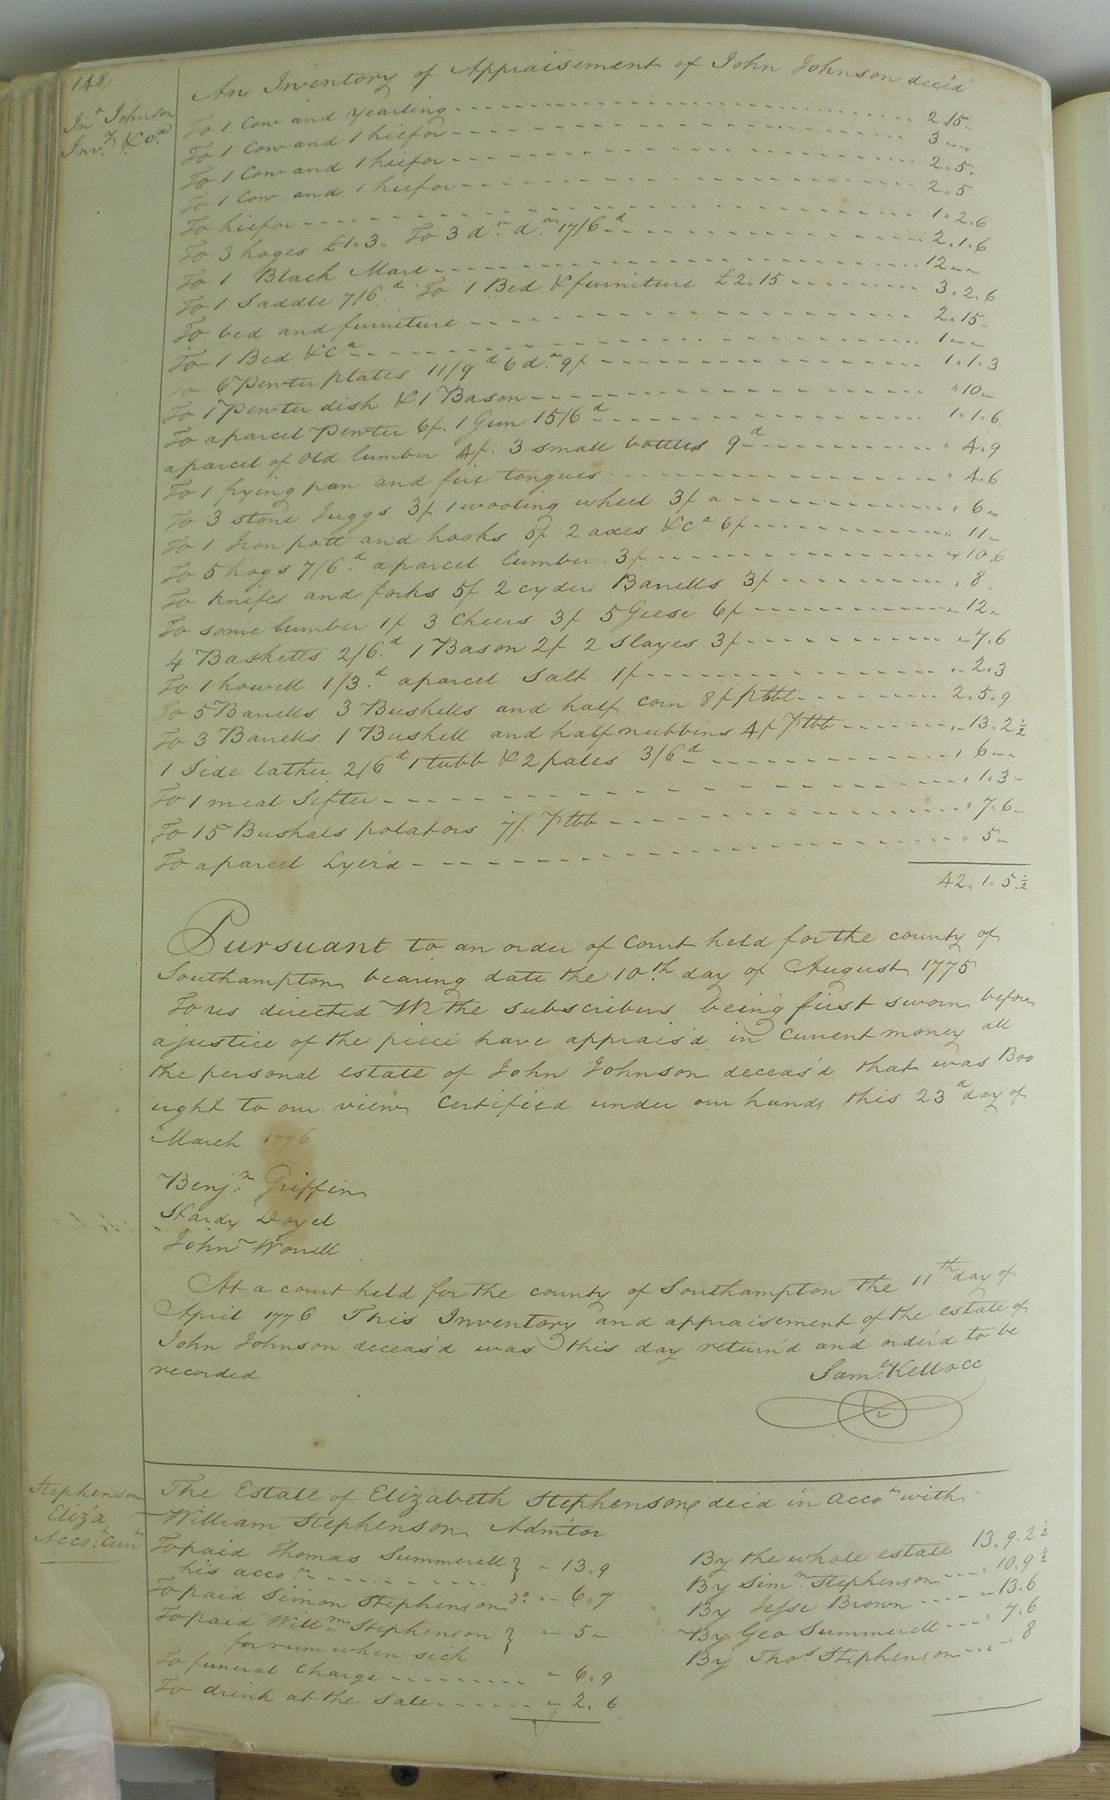 148
Jno Johnson
Invy &ca
An Inventory of Appraisement of John Johnson decd
To 1 Cow and Yearling 2.15.
To 1 Cow and 1 hiefor 3..
To 1 Cow and 1 hiefor 2.5.
To 1 Cow and 1 hiefor 2.5
To hiefor 1.2.6
To 3 hoges £1.3. To 3 do do 17/6d 2.1.6
To 1 Black Mare 12..
To 1 Saddle 7/6d To 1 Bed & furniture £2.15 3.2.6
To bed and furniture 2.15.
To 1 Bed &ca 1..
To 6 Pewter plates 11/9d 6 do 9/ 1.1.3
To 1 Pewter dish & 1 Bason "10.
To a parcel Pewter 6/. 1 Gun 15/6d 1.1.6
a parcel of old lumber 4/. 3 small bottles 9d " 4.9
To 1 frying pan and fire tongues " 4.6
To 3 stone Juggs 3/ 1 wooling wheel 3/ " 6.
To 1 Iron pott and hooks 5/ 2 axes &ca 6/ " 11.
To 5 hogs 7/6d a parcel Lumber 3/ " 10.6
To knifes and forks 5/ 2 cyder Barrells 3/ " 8
To some lumber 1/ 3 Cheers 3/ 5 Geese 6/ " 12.
4 Basketts 2/6d 1 Bason 2/ 2 Slayes 3/ " 7.6
To 1 howell 1/3d a parcel Salt 1/ " 2.3
To 5 Barells 3 Bushells and half corn 8/ 2.5.9
To 3 Barells 1 Bushell and half nubbins 4/ " 13.2½
1 Side lather 2/6d 1 tubb & 2 pales 3/6d " 6..
To 1 meal Sifter " 1.3.
To 15 Bushals potators " 7.6.
To a parcel " 5.
42.1.5½
Pursuant to an order of Court held for the county of
Southampton bearing date the 10th day of August 1775
To us directed We the subscribers being first sworn before
a justice of the piece have apprais'd in Current money all
the personal estate of John Johnson deceas'd that was Bro
ught to our view Certified under our hands this 23d day of
March 1776
Benjn Griffin
Hardy Doyel
John Worrell
At a court held for the county of Southampton the 11th day of
April 1776 This Inventory and appraisement of the estate of
John Johnson deceas'd was this day return'd and order'd to be
recorded
Saml Kello CC
Stephenson
Eliz'a
Acco: Curr
The Estate of Elizabeth Stephenson dec'd in Acco with
William Stephenson Admtor
To paid Thomas Summerell } " 13.9
his acco
To paid Simon Stephenson " 6.7
To paid Willm Stephenson } " 5.
for rum when sick
To funeral Charge " 6.9
To drink at the Sale " 2.6
By the whole estate 13.9.2½
By Simn Stephenson 10.9½
By Jesse Brown " 13.6
By Geo Summerell " 7.6
By Thos Stephenson " 8